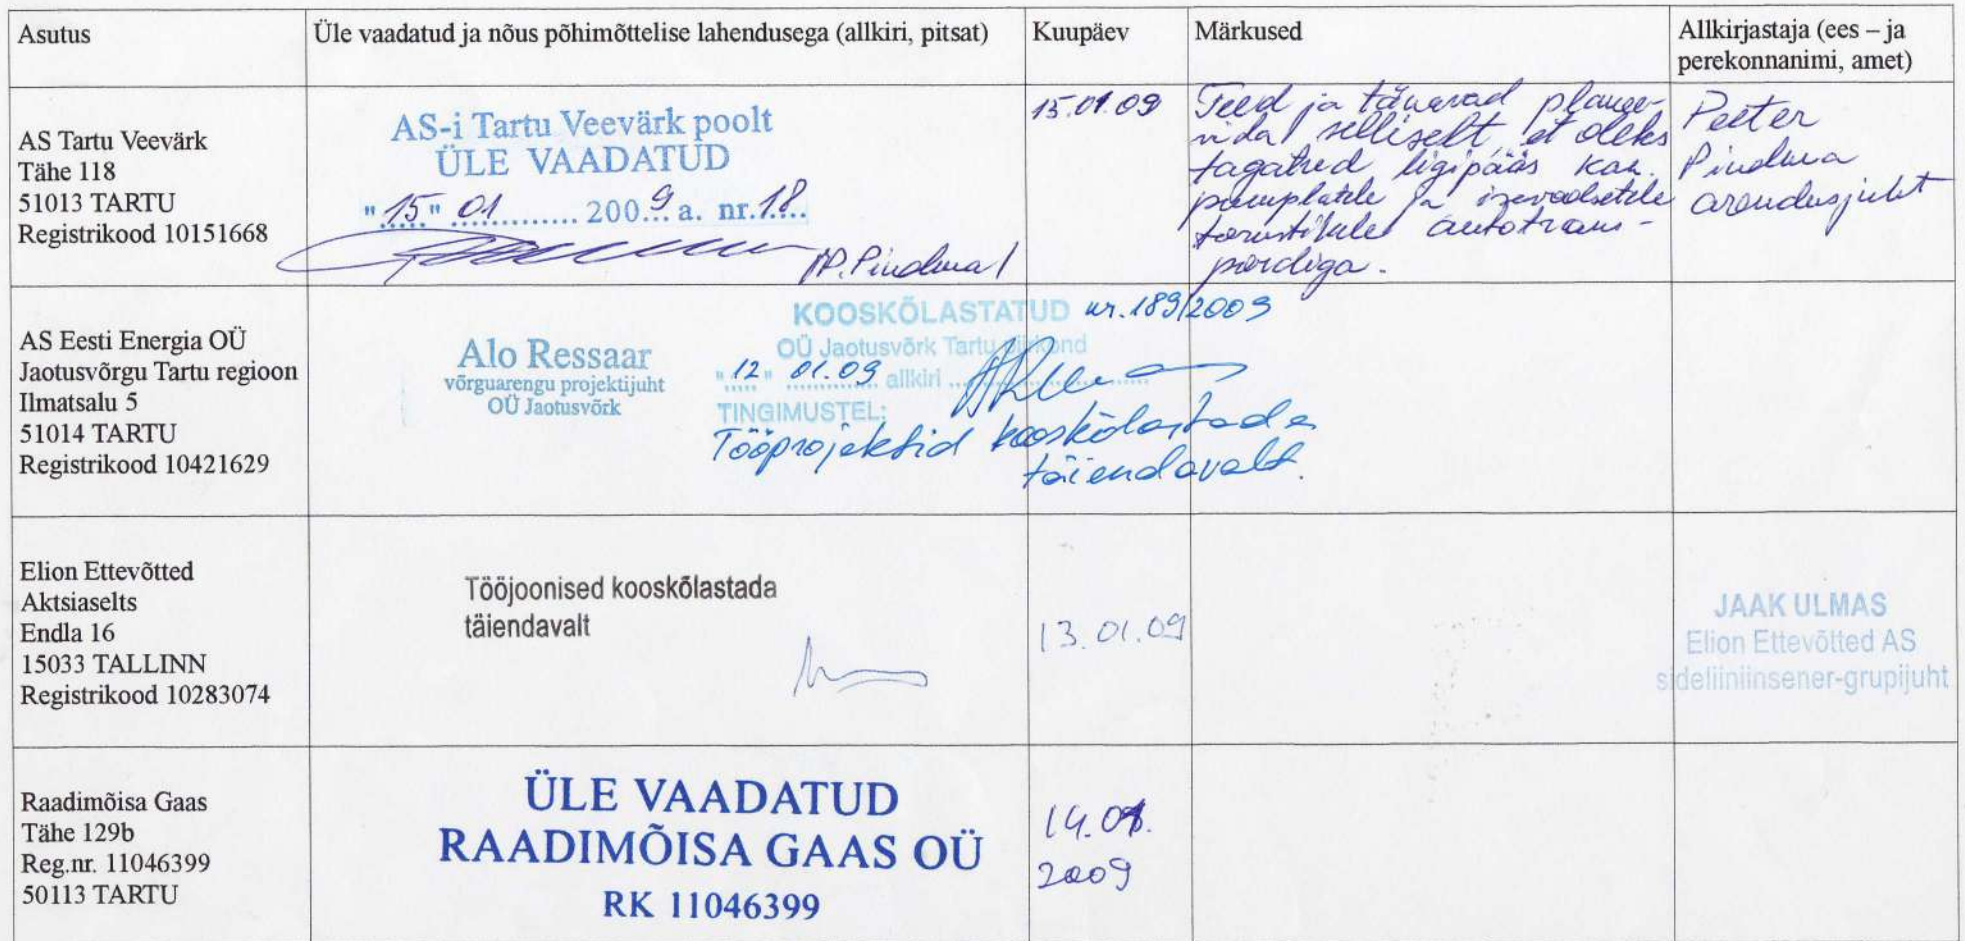 Asutus
Üle vaadatud ja nõus põhimõttelise lahendusega (allkiri, pitsat)
Kuupäev
Märkused
Allkirjastaja (ees – ja
perekonnanimi, amet)
AS Tartu Veevärk
Tähe 118
51013 TARTU
Registrikood 10151668
AS-i Tartu Veevärk poolt
ÜLE VAADATUD
"15" 01 2009 a. nr. 18
/P. Pindma/
15.01.09
Teed ja tänavad planee-
rida selliselt, et oleks
tagatud ligipääs kan.
pumplatele ja isevoolsetele
torustikele autotrans-
pordiga.
Peeter
Pindma
arendusjuht
AS Eesti Energia OÜ
Jaotusvõrgu Tartu regioon
Ilmatsalu 5
51014 TARTU
Registrikood 10421629
Alo Ressaar
võrguarengu projektijuht
OÜ Jaotusvõrk
KOOSKÕLASTATUD nr. 189/2009
OÜ Jaotusvõrk Tartu piirkond
"12" 01.09 allkiri
TINGIMUSTEL:
Tööprojektid kooskõlastada
täiendavalt.
Elion Ettevõtted
Aktsiaselts
Endla 16
15033 TALLINN
Registrikood 10283074
Tööjoonised kooskõlastada
täiendavalt
13.01.09
JAAK ULMAS
Elion Ettevõtted AS
sideliiniinsener-grupijuht
Raadimõisa Gaas
Tähe 129b
Reg.nr. 11046399
50113 TARTU
ÜLE VAADATUD
RAADIMÕISA GAAS OÜ
RK 11046399
14.01.
2009